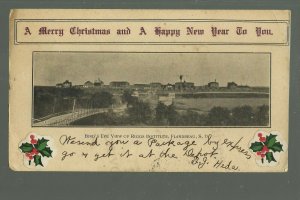 A Merry Christmas and A Happy New Year To You.
Bird's Eye View of Riggs Institute, Flandreau, S. D.
We send you a Package by express
go n get it at the Depot.